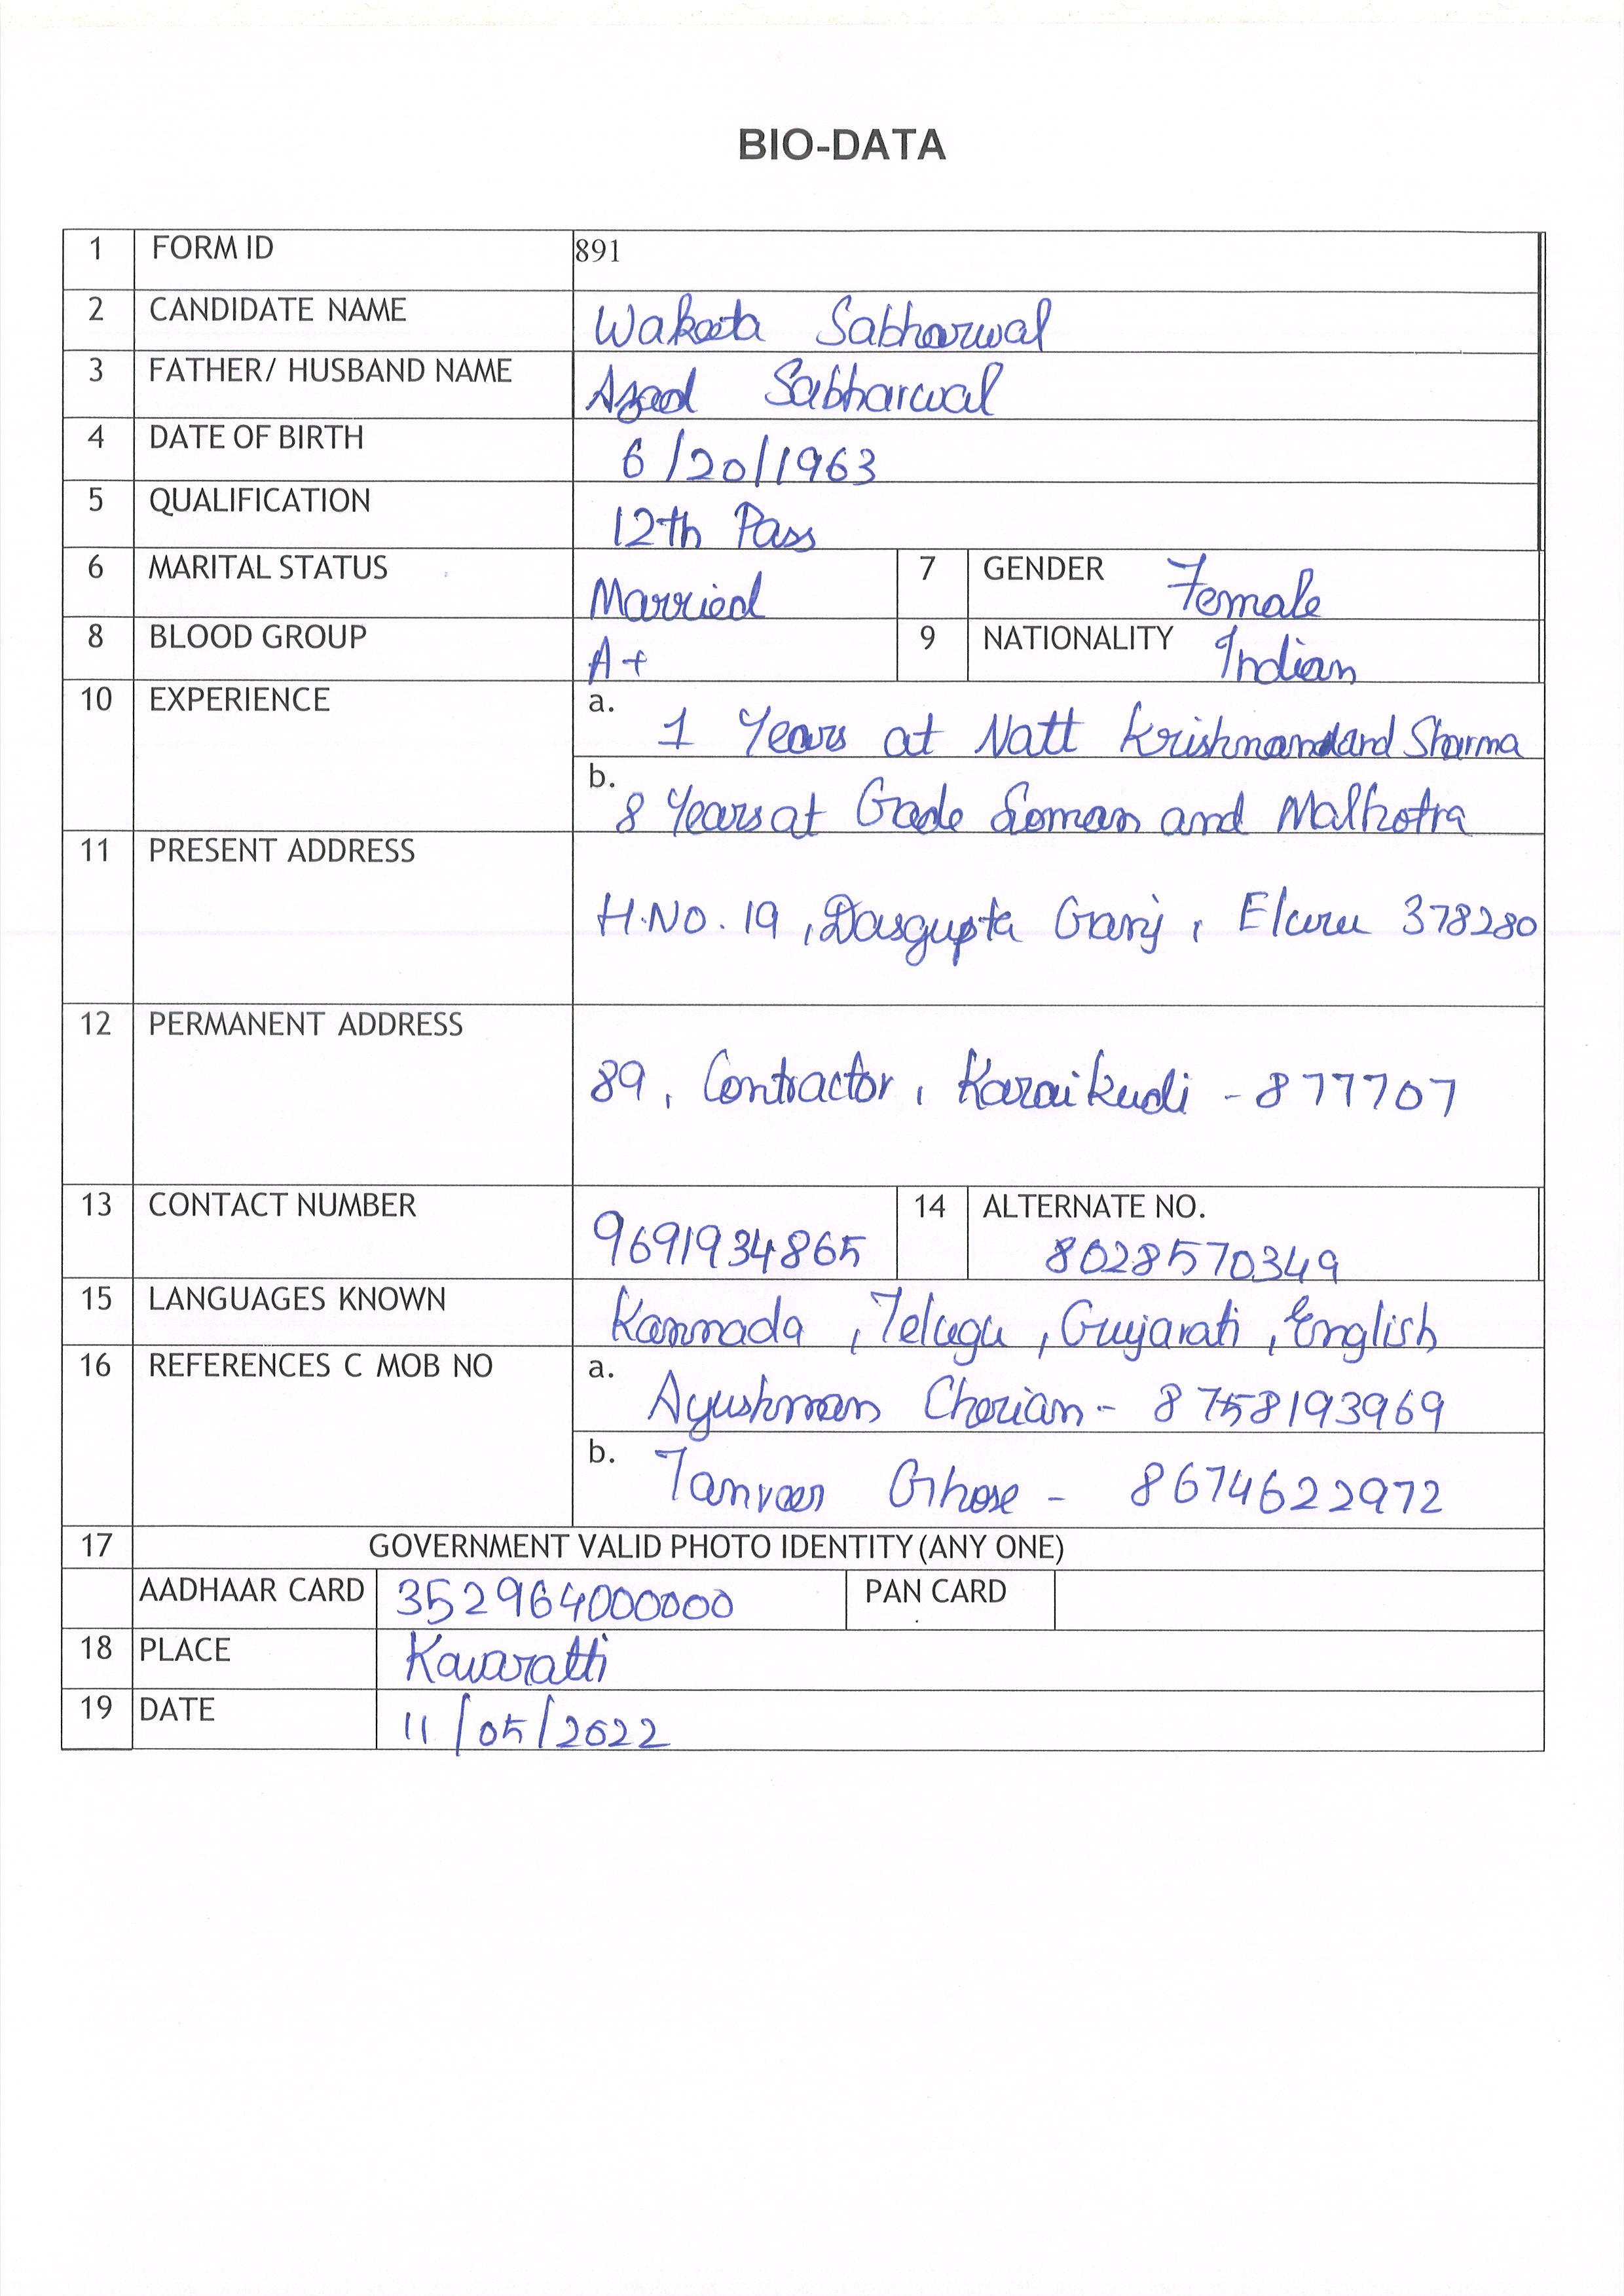 BIO-DATA
1 FORM ID 891
2 CANDIDATE NAME Wakeeta Sabharwal
3 FATHER/ HUSBAND NAME Azad Sabharwal
4 DATE OF BIRTH 6/20/1963
5 QUALIFICATION 12th Pass
6 MARITAL STATUS Married 7 GENDER Female
8 BLOOD GROUP A+ 9 NATIONALITY Indian
10 EXPERIENCE a. 1 Years at Natt Krishnan and Sharma
b. 8 Years at Gade Soman and Malhotra
11 PRESENT ADDRESS
H.NO. 19, Dasgupta Ganj, Eluru 378280
12 PERMANENT ADDRESS
89, Contractor, Karaikudi - 877707
13 CONTACT NUMBER 9691934865 14 ALTERNATE NO. 8028570349
15 LANGUAGES KNOWN Kannada, Telugu, Gujarati, English
16 REFERENCES C MOB NO a. Ayushman Cherian - 8758193969
b. Tanveer Ghose - 8674622972
17 GOVERNMENT VALID PHOTO IDENTITY (ANY ONE)
AADHAAR CARD 352964000000 PAN CARD
18 PLACE Kavaratti
19 DATE 11/05/2022